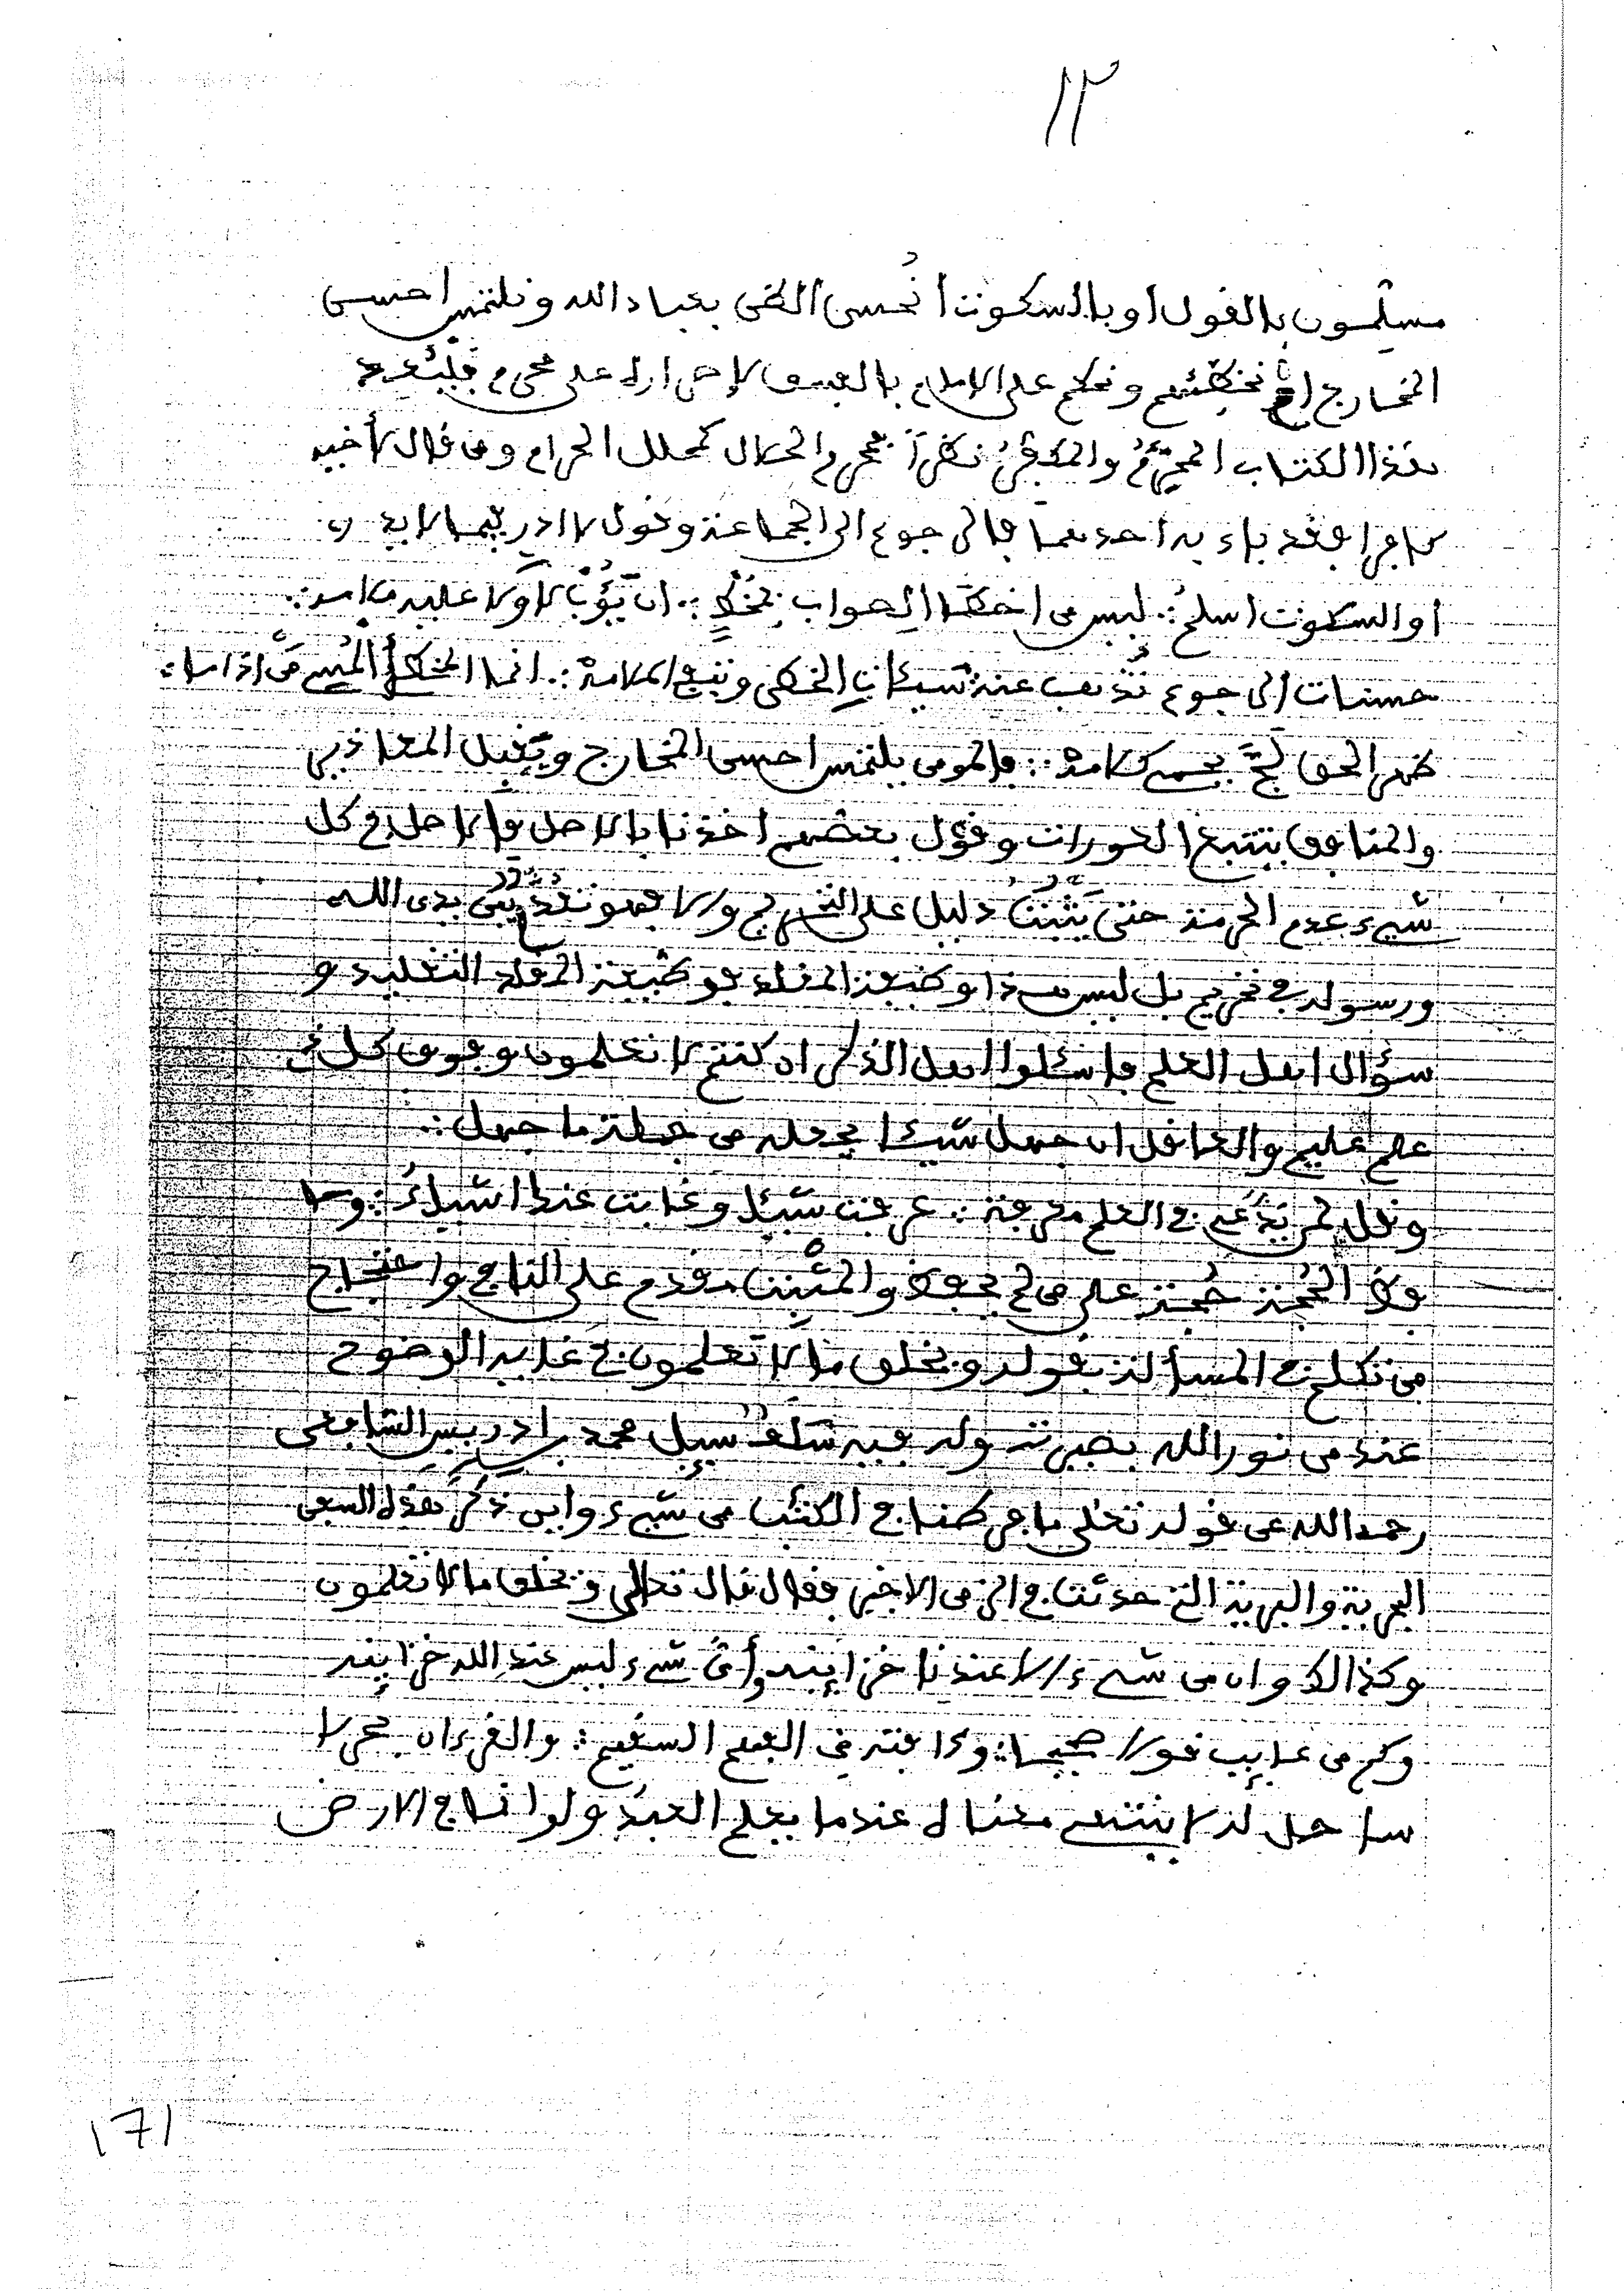 ١٣
مسلمون بالقول او بالسكوت انحسن الظن بعباد الله ونلتمس احسن
المخارج ام نخطئهم ونحكم على الامام بالفسق لاصراره على محرم فليتعرف
هذا الكتاب المحرم والمكفر نظرا فمحرم الحلال كمحلل الحرام ومن قال لأخيه
كافر فقد باء به احدهما فالرجوع الى الجماعة وقول لا ادر فيما لا يدرى
او السكوت اسلم ∴ ليس من اخطا الصواب بمخط ∴ ان يؤب لا ولا عليه ملامه ∴
حسنات الرجوع تذهب عنه سيئات الخطى وتنفي الملامه ∴ انما المخطئ المسي من اذا ما ∴
ظهر الحق لج يحمي كلامه ∴ فالمومن يلتمس احسن المخارج ويقبل المعاذير
والمنافق يتتبع العورات وقول بعضهم اخذنا بالاصل والاصل في كل
شيء عدم الحرمة حتى يثبت دليل على التحريم والا فهو تقدم بين يدى الله
ورسوله في تحريم بل ليست ذا وظيفة المقلد هو ظيفة المقلد التقليد و
سؤال اهل العلم فاسئلوا اهل الذكر ان كنتم لا تعلمون وفوق كل ذى
علم عليم والغافل ان جهل شيئا يجعله من جملة ما جهل ∴
وقل لمن يدعي في العلم معرفة ∴ عرفت شيئا وغابت عنك اشياء ∴ و
ولا الحجة حجة على من لم يحفظ والمثبت مقدم على النافي واحتجاج
من تكلم في المسألة بقوله ويخلق ما لا تعلمون في غاية الوضوح
عند من نور الله بصيرته وله فيه سلف سيل محمد بن ادريس الشافعي
رحمه الله عن قوله تعلى ما فرطنا في الكتب من شيء واين ذكر هذه السفن
البحرية والبرية التي حدثت في الزمن الاخير فقال قال تعالى ويخلق ما لا تعلمون
وكذالك وان من شيء الا عندنا خزاينه وأي شيء ليس عند الله خزاينه
وكم من عايب قولا صحيحا ∴ وءافته من الفهم السقيم ∴ والقرءان بحر لا
ساحل له لا ينتهي معناه عندما يعلم العبد ولو انما في الارض
171